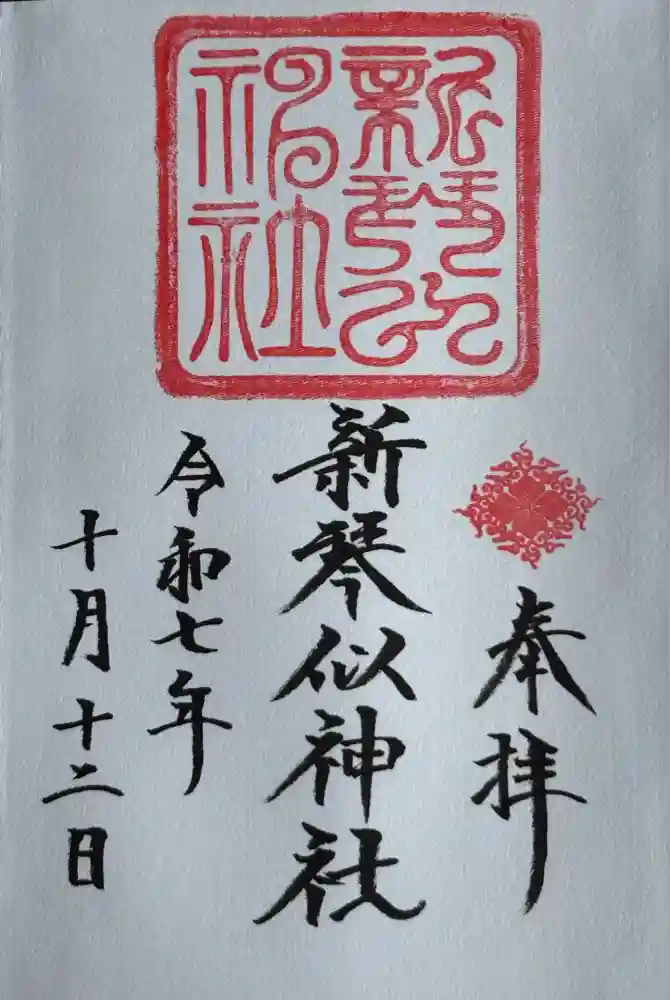 奉拝
新琴似神社
令和七年
十月十二日
新琴似
神社